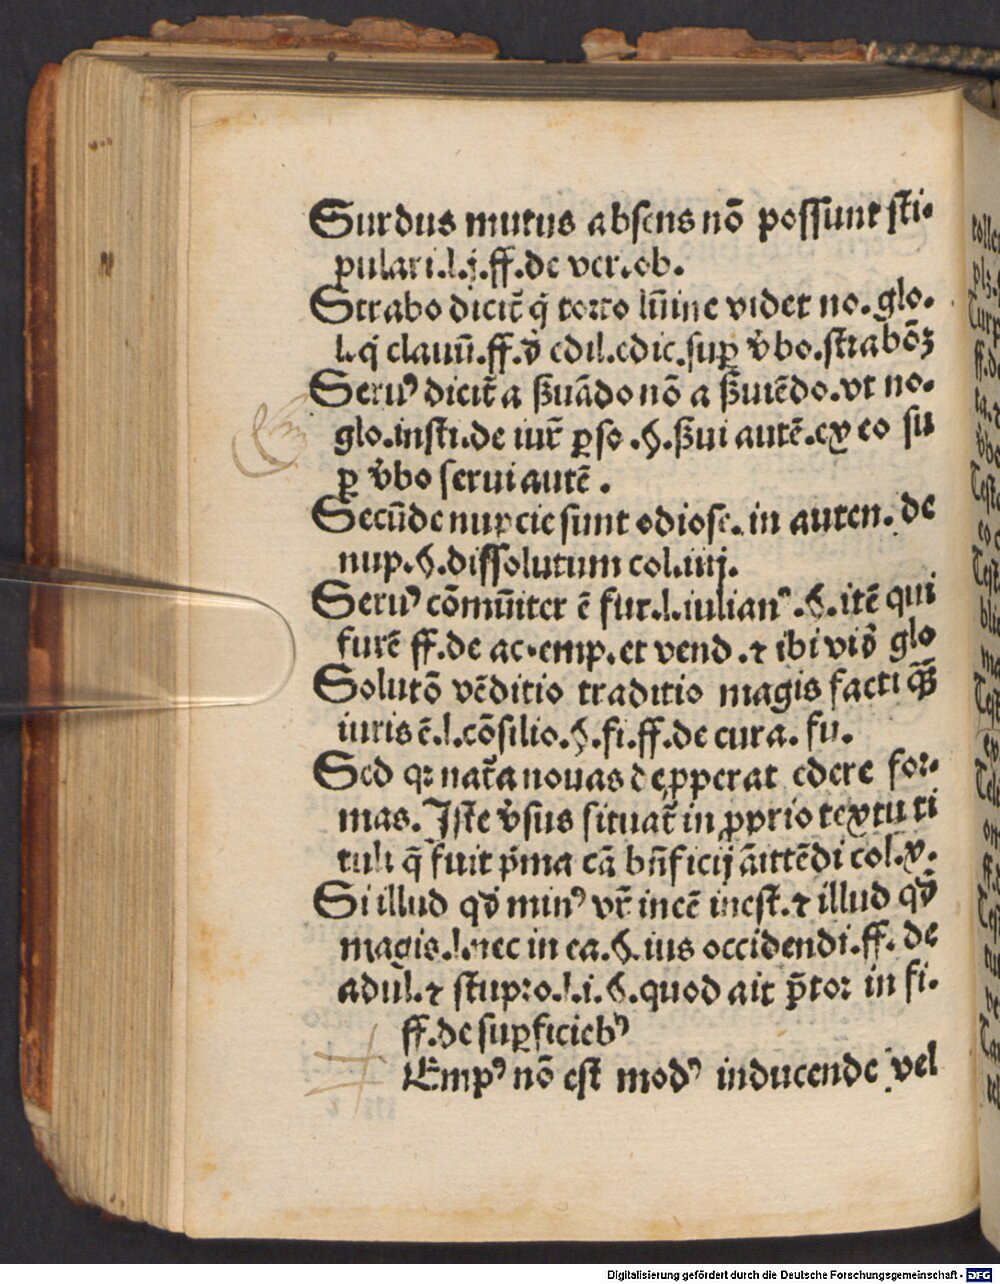 Surdus mutus absens nō possunt sti-
pulari.l.j.ff.de ver.ob.
Strabo dicit̄ q̇ torto lūine videt no.glo.
l.q̇ clauū.ff.ď edil.edic.suꝑ v̇bo.strabōꝫ
Seruꝰ dicit̄ a ẜuādo nō a ẜuiēdo.vt no.
glo.insti.de iur̄ ꝑso.§.ẜui autē.ex eo su
ꝑ v̇bo serui autē.
Secūde nupcie sunt odiose.in auten.de
nup.§.dissolutum col.iiij.
Seruꝰ cōmūiter ē fur.l.iulianꝰ.§.itē qui
furē ff.de ac.emp.et vend.⁊ ibi vid̄ glo
Solutō vēditio traditio magis facti qȝ̄
iuris ē.l.cōsilio.§.fi.ff.de cura.fu.
Sed qꝛ nat̄a nouas deꝓperat edere for-
mas.Iste v̇sus situat̄ in ꝓprio textu ti
tuli q̄ fuit p̄ma cā bn̄ficij āittēdi col.x.
Si illud qď minꝰ vr̄ ineē inest.⁊ illud qď
magis.l.nec in ea.§.ius occidendi.ff.de
adul.⁊ stupro.l.i.§.quod ait p̄tor in fi.
ff.de suꝑficiebꝰ
Tempꝰ nō est modꝰ inducende vel
Digitalisierung gefördert durch die Deutsche Forschungsgemeinschaft - DFG